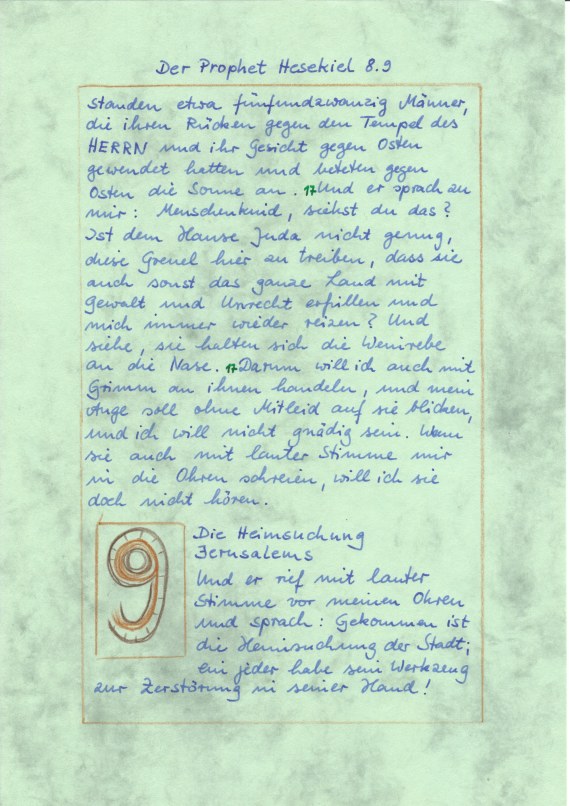 Der Prophet Hesekiel 8.9
standen etwa fünfundzwanzig Männer,
die ihren Rücken gegen den Tempel des
HERRN und ihr Gesicht gegen Osten
gewendet hatten und beteten gegen
Osten die Sonne an. 17 Und er sprach zu
mir: Menschenkind, siehst du das?
Ist dem Hause Juda nicht genug,
diese Greuel hier zu treiben, dass sie
auch sonst das ganze Land mit
Gewalt und Unrecht erfüllen und
mich immer wieder reizen? Und
siehe, sie halten sich die Weinrebe
an die Nase. 17 Darum will ich auch mit
Grimm an ihnen handeln, und mein
Auge soll ohne Mitleid auf sie blicken,
und ich will nicht gnädig sein. Wenn
sie auch mit lauter Stimme mir
in die Ohren schreien, will ich sie
doch nicht hören.
9
Die Heimsuchung
Jerusalems
Und er rief mit lauter
Stimme vor meinen Ohren
und sprach: Gekommen ist
die Heimsuchung der Stadt;
ein jeder habe sein Werkzeug
zur Zerstörung in seiner Hand!